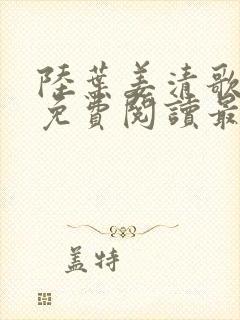 陸葉姜清歌
免費閱讀最
盖特